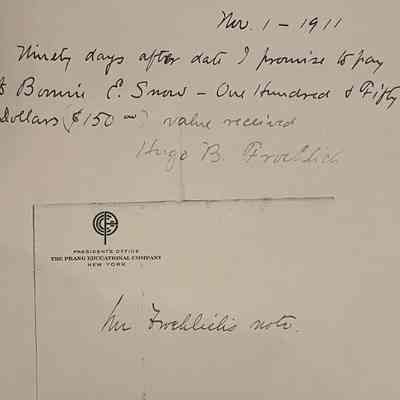 Nov. 1 - 1911
Ninety days after date I promise to pay
to Bonnie E. Snow - One Hundred & Fifty
Dollars ($150 00) value received
Hugo B. Froehlich
PRESIDENT'S OFFICE
THE PRANG EDUCATIONAL COMPANY
NEW YORK
Mr Froehlich's note.